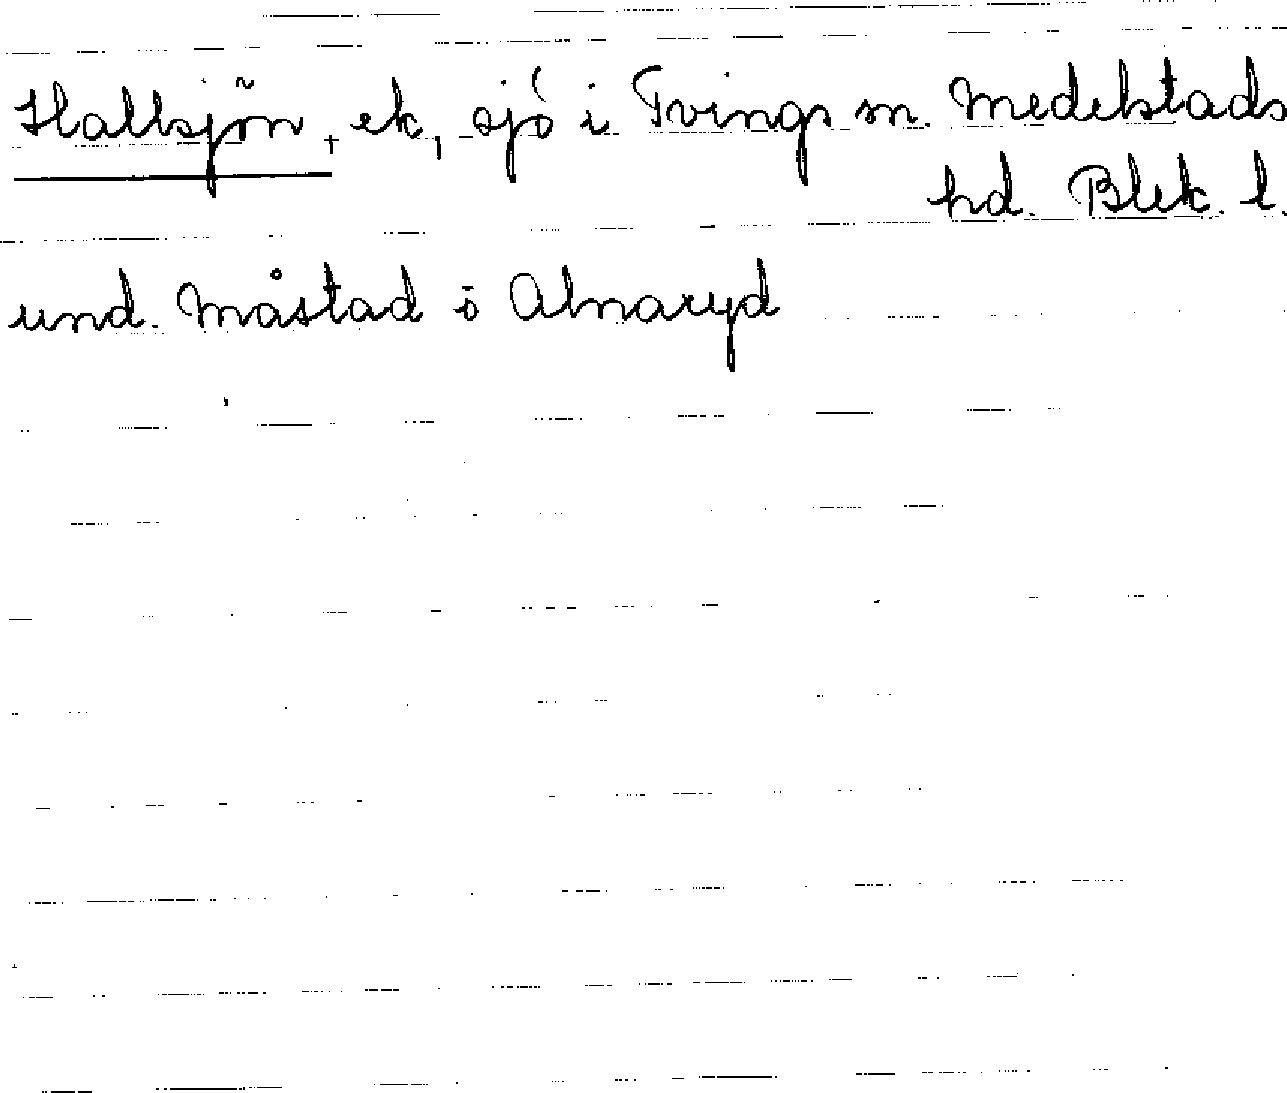 Hallsjön, ek, sjö i Tvings sn. Medelstads
hd. Blek. l.
und. Måstad o Alnaryd